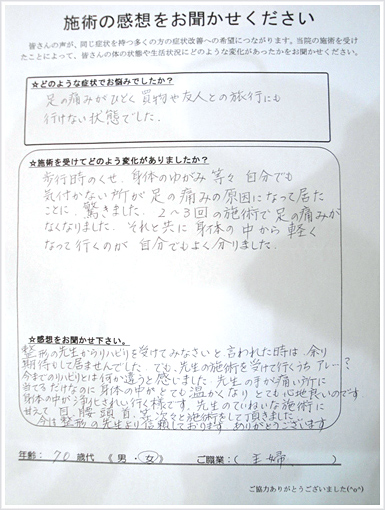 施術の感想をお聞かせください
皆さんの声が、同じ症状を持つ多くの方の症状改善への希望につながります。当院の施術を受け
たことによって、皆さんの体の状態や生活状況にどのような変化があったかをお聞かせください。
☆どのような症状でお悩みでしたか?
足の痛みがひどく買物や友人との旅行にも
行けない状態でした。
☆施術を受けてどのよう変化がありましたか?
歩行時のくせ、身体のゆがみ等々自分でも
気付かない所が足の痛みの原因になって居た
ことに、驚きました。2~3回の施術で足の痛みが
なくなりました。それと共に身体の中から軽く
なって行くのが自分でもよく分りました。
☆感想をお聞かせ下さい。
整形の先生からリハビリを受けてみなさいと言われた時は、余り
期待もして居ませんでした。でも、先生の施術を受けて行くうちアレー?
今までのリハビリとは何か違うと感じました。先生の手が痛い所に
当てるだけなのに身体の中がとても温かくなりとても心地良いのです
身体の中が浄化されて行く様です。先生のていねいな施術に
甘えて目、腰、頭、首、等次々と施術をして頂きました。
今は整形の先生より信頼しております。ありがとうございます
年齢: 70歳代 《男・女》 ご職業:( 主婦 )
ご協力ありがとうございました(^o^)